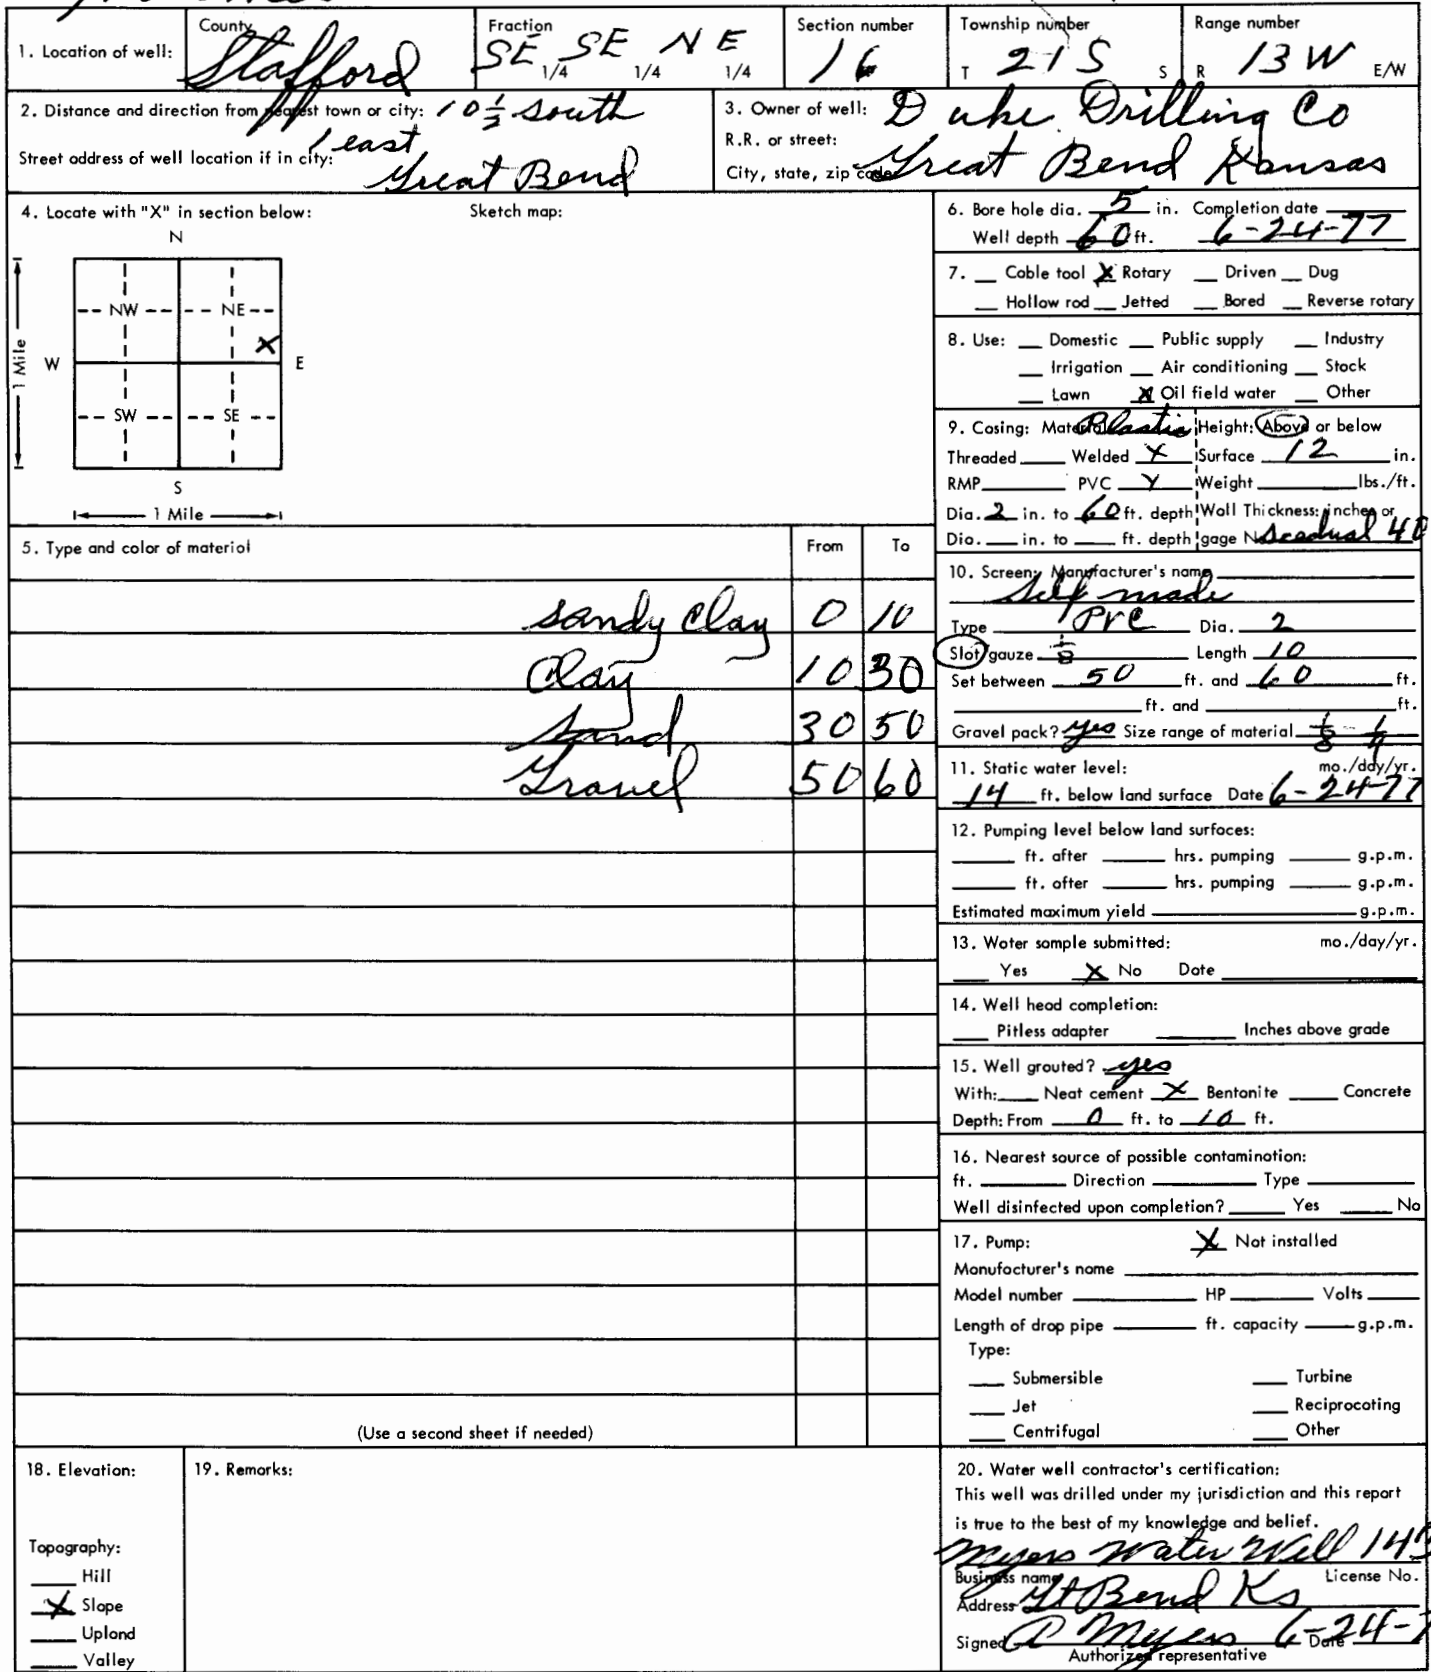 County Fraction Section number Township number Range number
1. Location of well: Stafford SE 1/4 SE 1/4 NE 1/4 16 T 21 S S R 13 W E/W
2. Distance and direction from nearest town or city: 10 1/2 south
1 east
Street address of well location if in city: Great Bend
3. Owner of well: Duke Drilling Co
R.R. or street:
City, state, zip code: Great Bend Kansas
4. Locate with "X" in section below: Sketch map:
N
NW NE
X
W E
SW SE
S
1 Mile
1 Mile
5. Type and color of material From To
sandy clay 0 10
Clay 10 30
Sand 30 50
Gravel 50 60
(Use a second sheet if needed)
6. Bore hole dia. 5 in. Completion date
Well depth 60 ft. 6-24-77
7. Cable tool X Rotary Driven Dug
Hollow rod Jetted Bored Reverse rotary
8. Use: Domestic Public supply Industry
Irrigation Air conditioning Stock
Lawn X Oil field water Other
9. Casing: Material Plastic Height: Above or below
Threaded Welded X Surface 12 in.
RMP PVC X Weight lbs./ft.
Dia. 2 in. to 60 ft. depth Wall Thickness: inches or
Dia. in. to ft. depth gage No. Scedual 40
10. Screen: Manufacturer's name
Self made
Type PVC Dia. 2
Slot/gauze 1/8 Length 10
Set between 50 ft. and 60 ft.
ft. and ft.
Gravel pack? yes Size range of material 1/8 - 1/4
11. Static water level: mo./day/yr.
14 ft. below land surface Date 6-24-77
12. Pumping level below land surfaces:
ft. after hrs. pumping g.p.m.
ft. after hrs. pumping g.p.m.
Estimated maximum yield g.p.m.
13. Water sample submitted: mo./day/yr.
Yes X No Date
14. Well head completion:
Pitless adapter Inches above grade
15. Well grouted? yes
With: Neat cement X Bentonite Concrete
Depth: From 0 ft. to 10 ft.
16. Nearest source of possible contamination:
ft. Direction Type
Well disinfected upon completion? Yes No
17. Pump: X Not installed
Manufacturer's name
Model number HP Volts
Length of drop pipe ft. capacity g.p.m.
Type:
Submersible Turbine
Jet Reciprocating
Centrifugal Other
18. Elevation:
Topography:
Hill
X Slope
Upland
Valley
19. Remarks:
20. Water well contractor's certification:
This well was drilled under my jurisdiction and this report
is true to the best of my knowledge and belief.
Myers Water Well
Business name License No.
Address Gt Bend Ks
Signed Myers 6-24- Date
Authorized representative